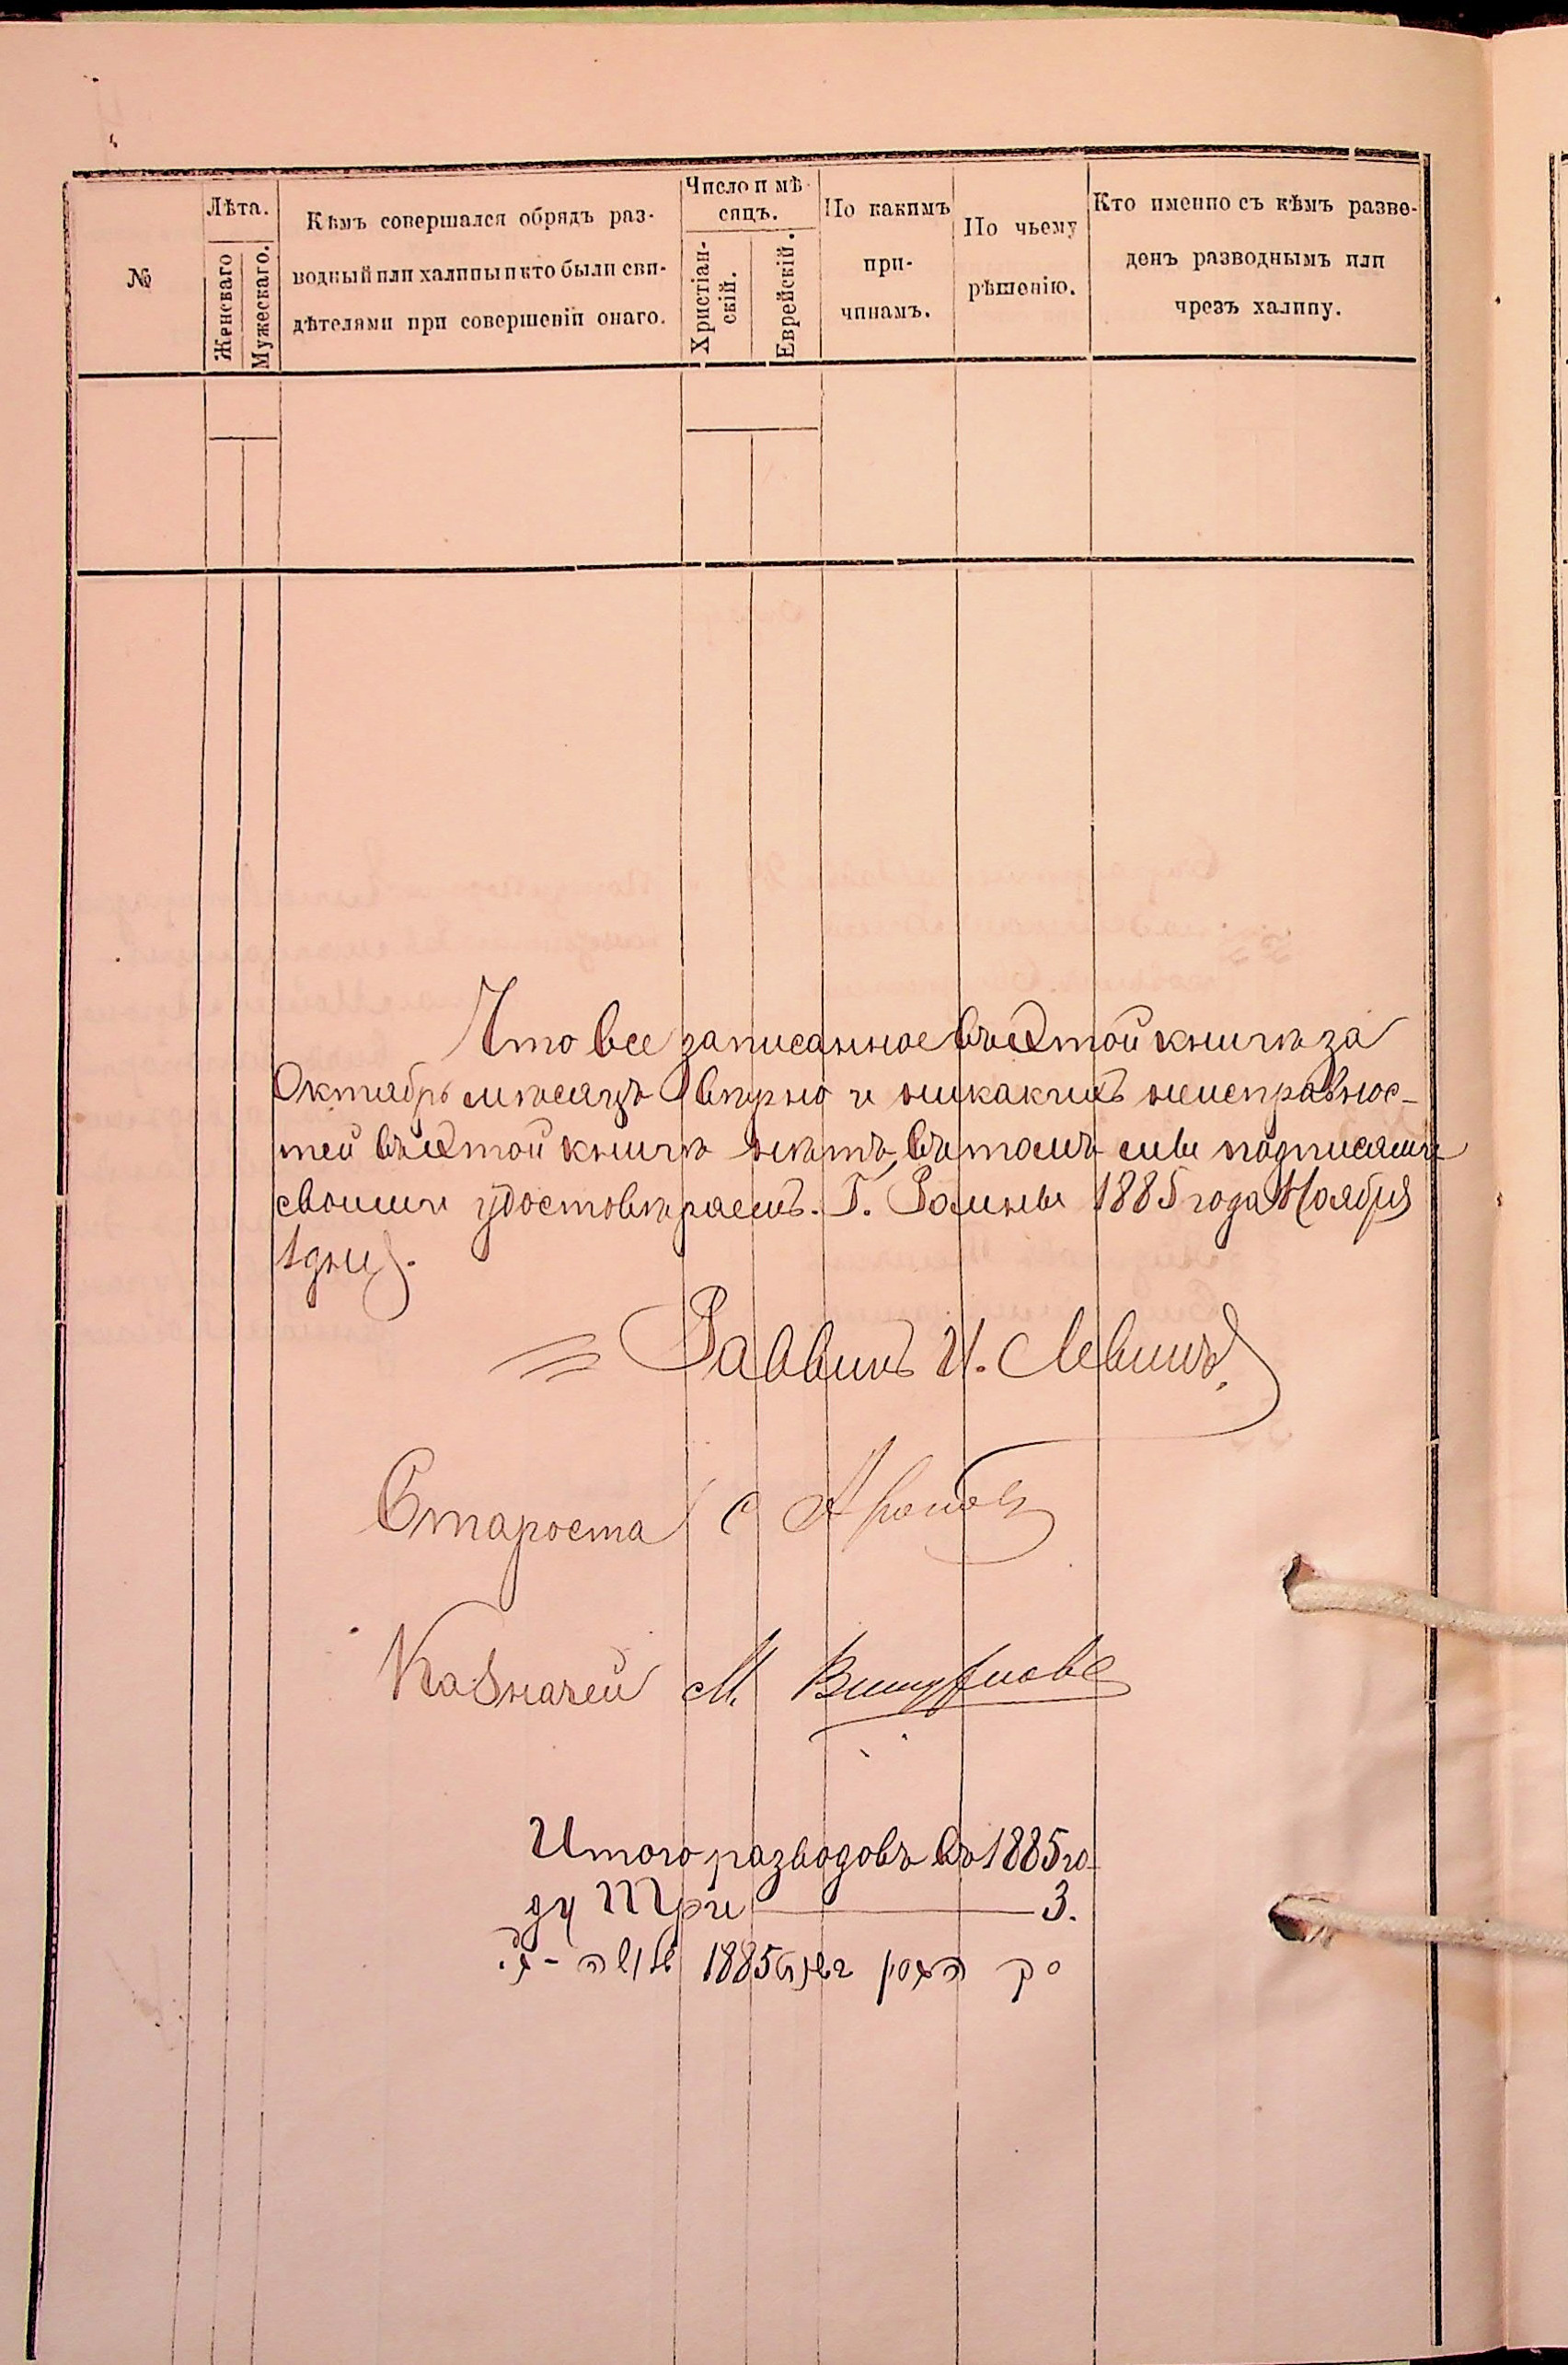 №
Лѣта.
Женскаго
Мужескаго.
Кѣмъ совершался обрядъ раз-
водный или халицы и кто были сви-
дѣтелями при совершеніи онаго.
Число и мѣ-
сяцъ.
Христіан-
скій.
Еврейскій.
По какимъ
при-
чинамъ.
По чьему
рѣшенію.
Кто именно съ кѣмъ разве-
денъ разводнымъ или
чрезъ халицу.
Что все записанное въ этой книгѣ за
Октябрь мѣсяцъ вѣрно и никакихъ неисправнос-
тей въ этой книгѣ нѣтъ, въ томъ мы подписями
своими удостовѣряемъ. Г. Ромны 1885 года Ноября
1 дня.
Раввинъ И. Левинъ
Староста С
Казначей М.
Итого разводовъ въ 1885 го-
ду Три 3.
1885